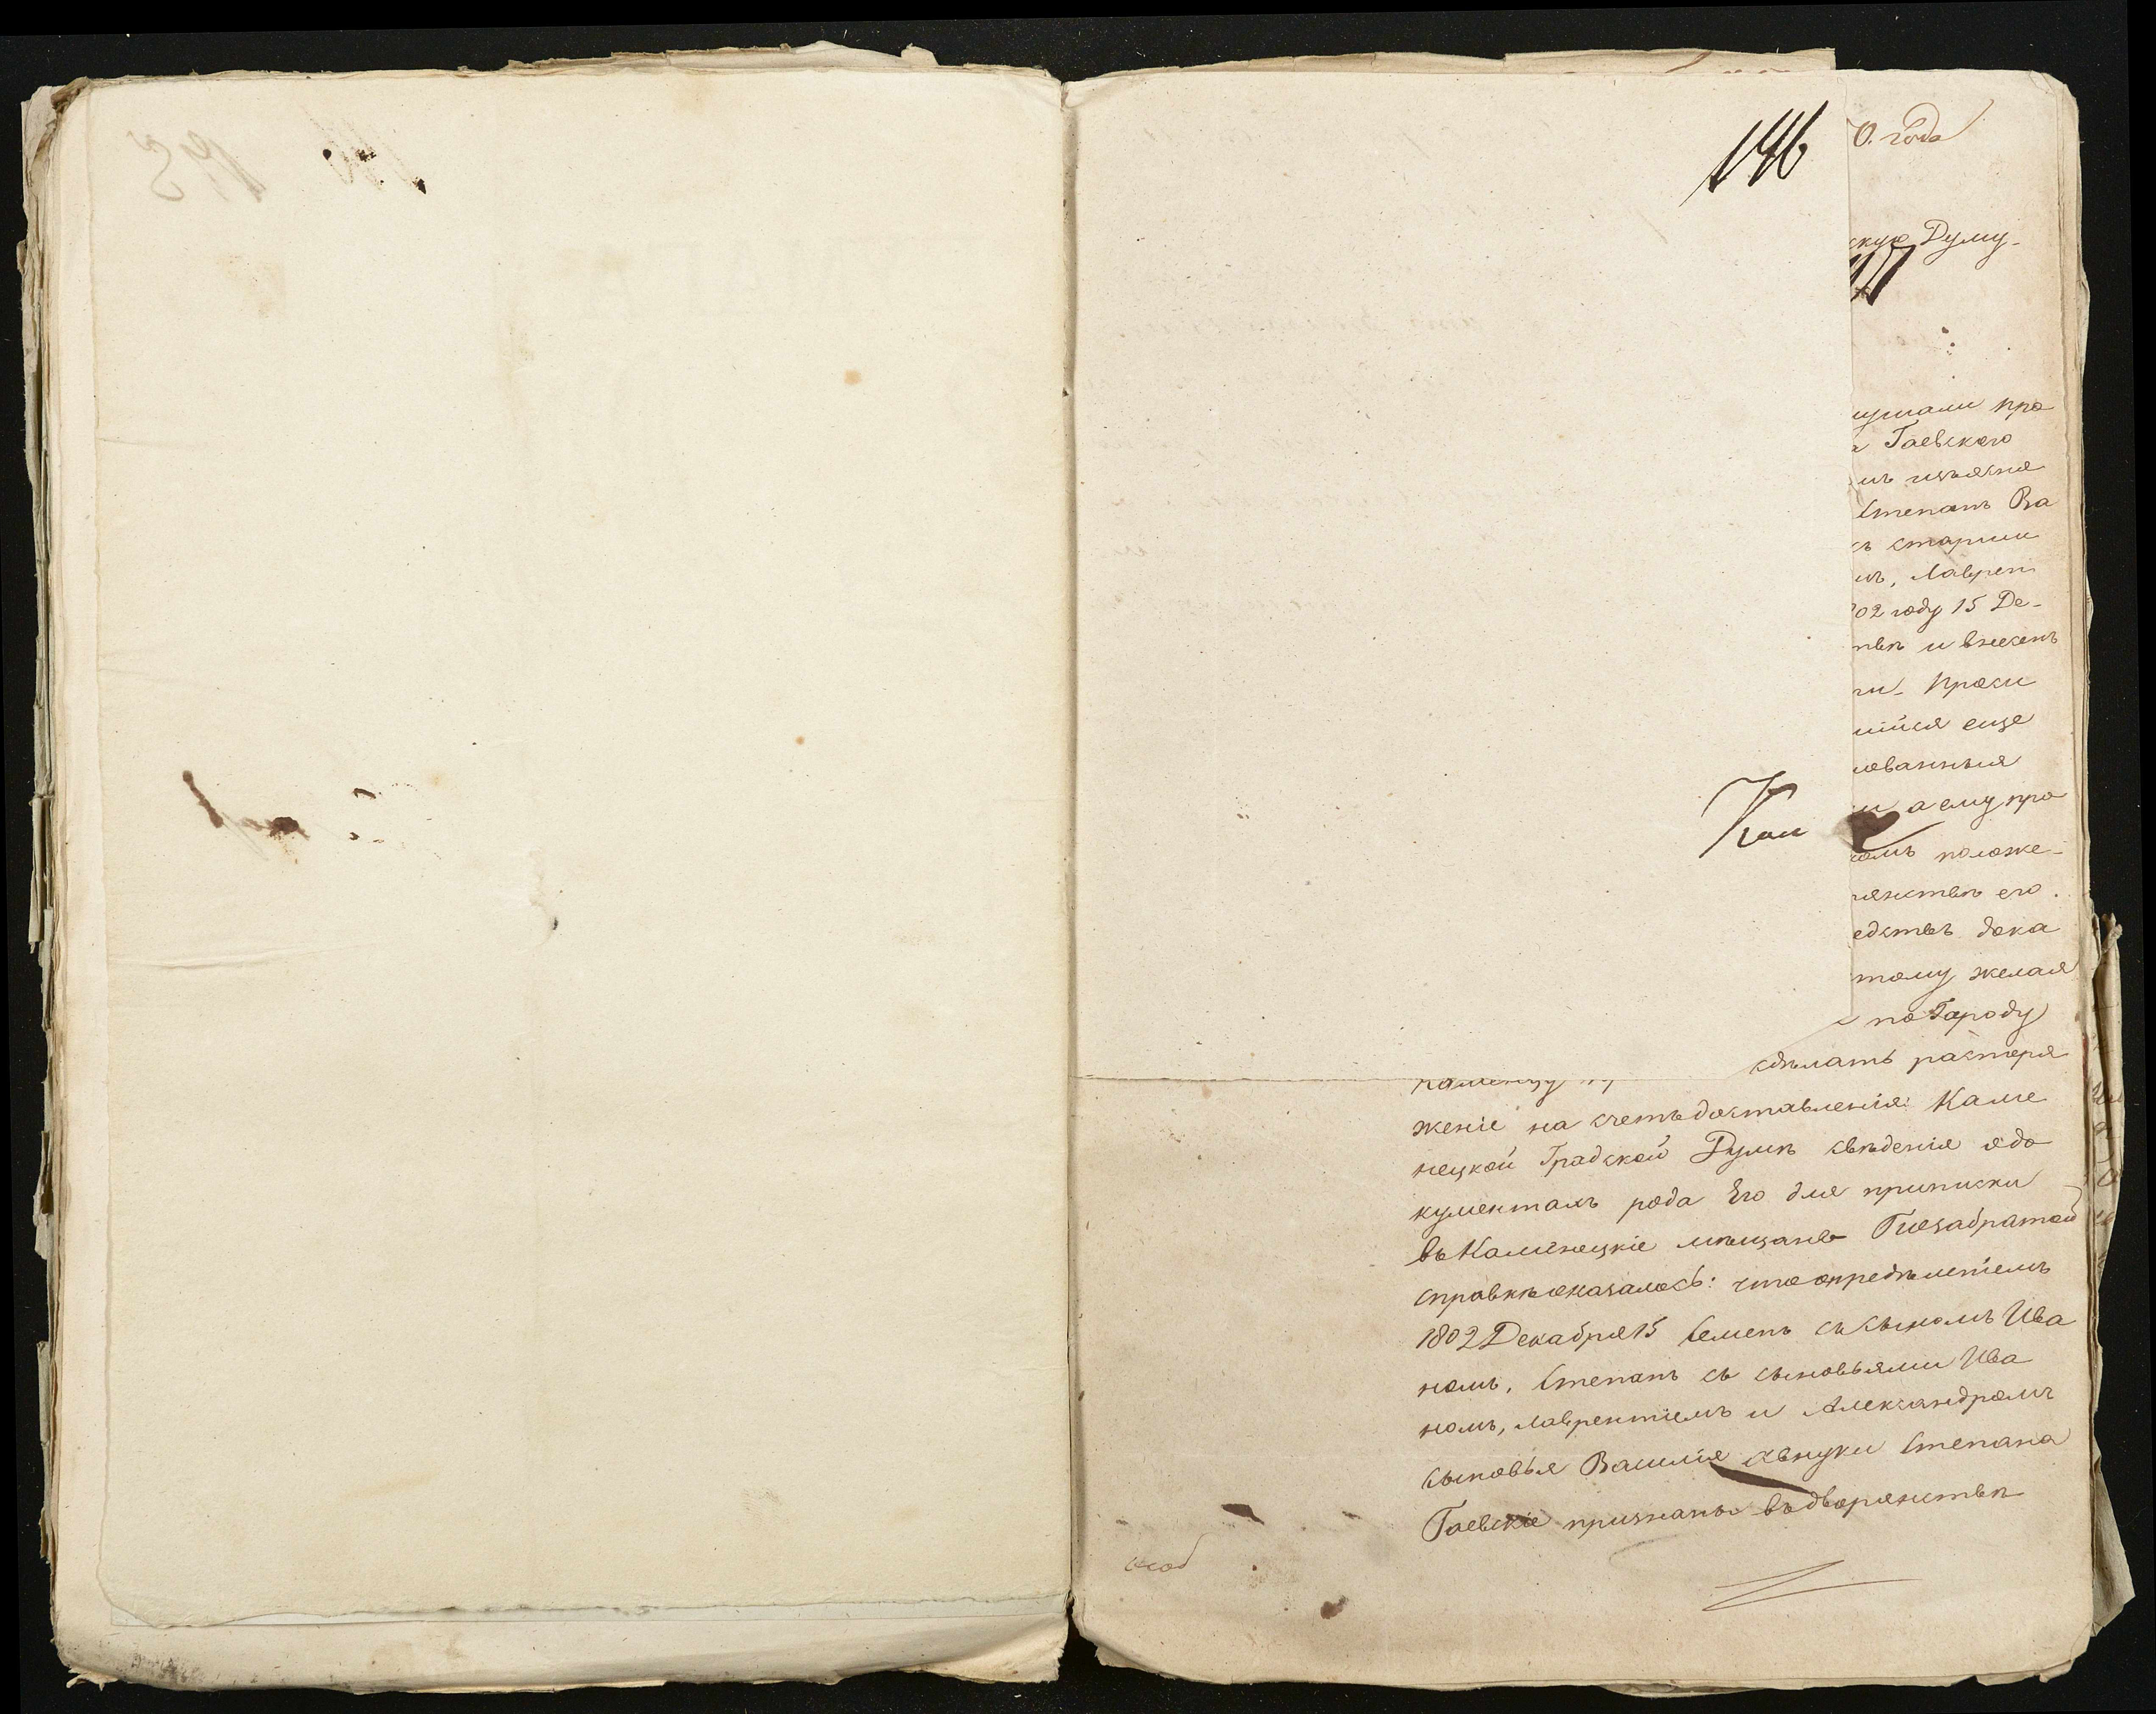 146
0. года
скую Думу
ушали про
Гаевского
мъ изъясня
Степанъ Ва
съ старши
мъ, Лаврен
02 году 15 Де-
твѣ и внесенъ
ги. Проси
шійся еще
лованныя
и а ему про
комъ положе-
рянствѣ его.
едствъ дока
тому желая
по Городу
Каменцу сдѣлать распоря
женіе на счетъ доставленія Каме
нецкой Градской Думѣ свѣденія одо
кументахъ рода Его для приписки
въ Каменецкіе мѣщане Повзабратой
справкѣ оказалось: что опредѣленіемъ
1802 Декабря 15 Семенъ съ сыномъ Ива
номъ, Степанъ съ сыновьями Ива
номъ, Лаврентіемъ и Александромъ
сыновья Василія авнуки Степана
Гаевскіе признаны въ дворянствѣ